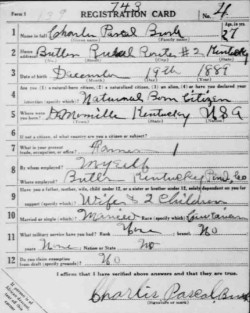 Form 1
743
REGISTRATION CARD
No. 4
1 Name in full Charlie Pascal Bush
Age, in yrs. 27
2 Home address Butler Rural Route #2 Kentucky
3 Date of birth December 19th 1889
4 Natural Born Citizen
5 Where were you born? Kentucky USA
6 If not a citizen, of what country are you a citizen or subject?
7 What is your present trade, occupation, or office? Farmer 1
8 By whom employed? Myself
Where employed? Butler Kentucky
9 Have you a father, mother, wife, child under 12, or a sister or brother under 12, solely dependent on you for support (specify which)? Wife & 2 Children
10 Married or single (which)? Married Race (specify which)? Caucasian
11 What military service have you had? Rank None branch No
years None Nation or State No
12 Do you claim exemption from draft (specify grounds)? No
I affirm that I have verified above answers and that they are true.
Charlie Pascal Bush